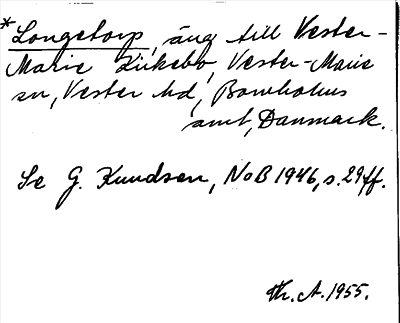 *Longetorp, äng till Vester-
Marie Kirkebo, Vester-Marie
sn, Vester hd, Bornholms
amt, Danmark.
Se G. Knudsen, NoB 1946, s. 29ff.
Th. A. 1955.